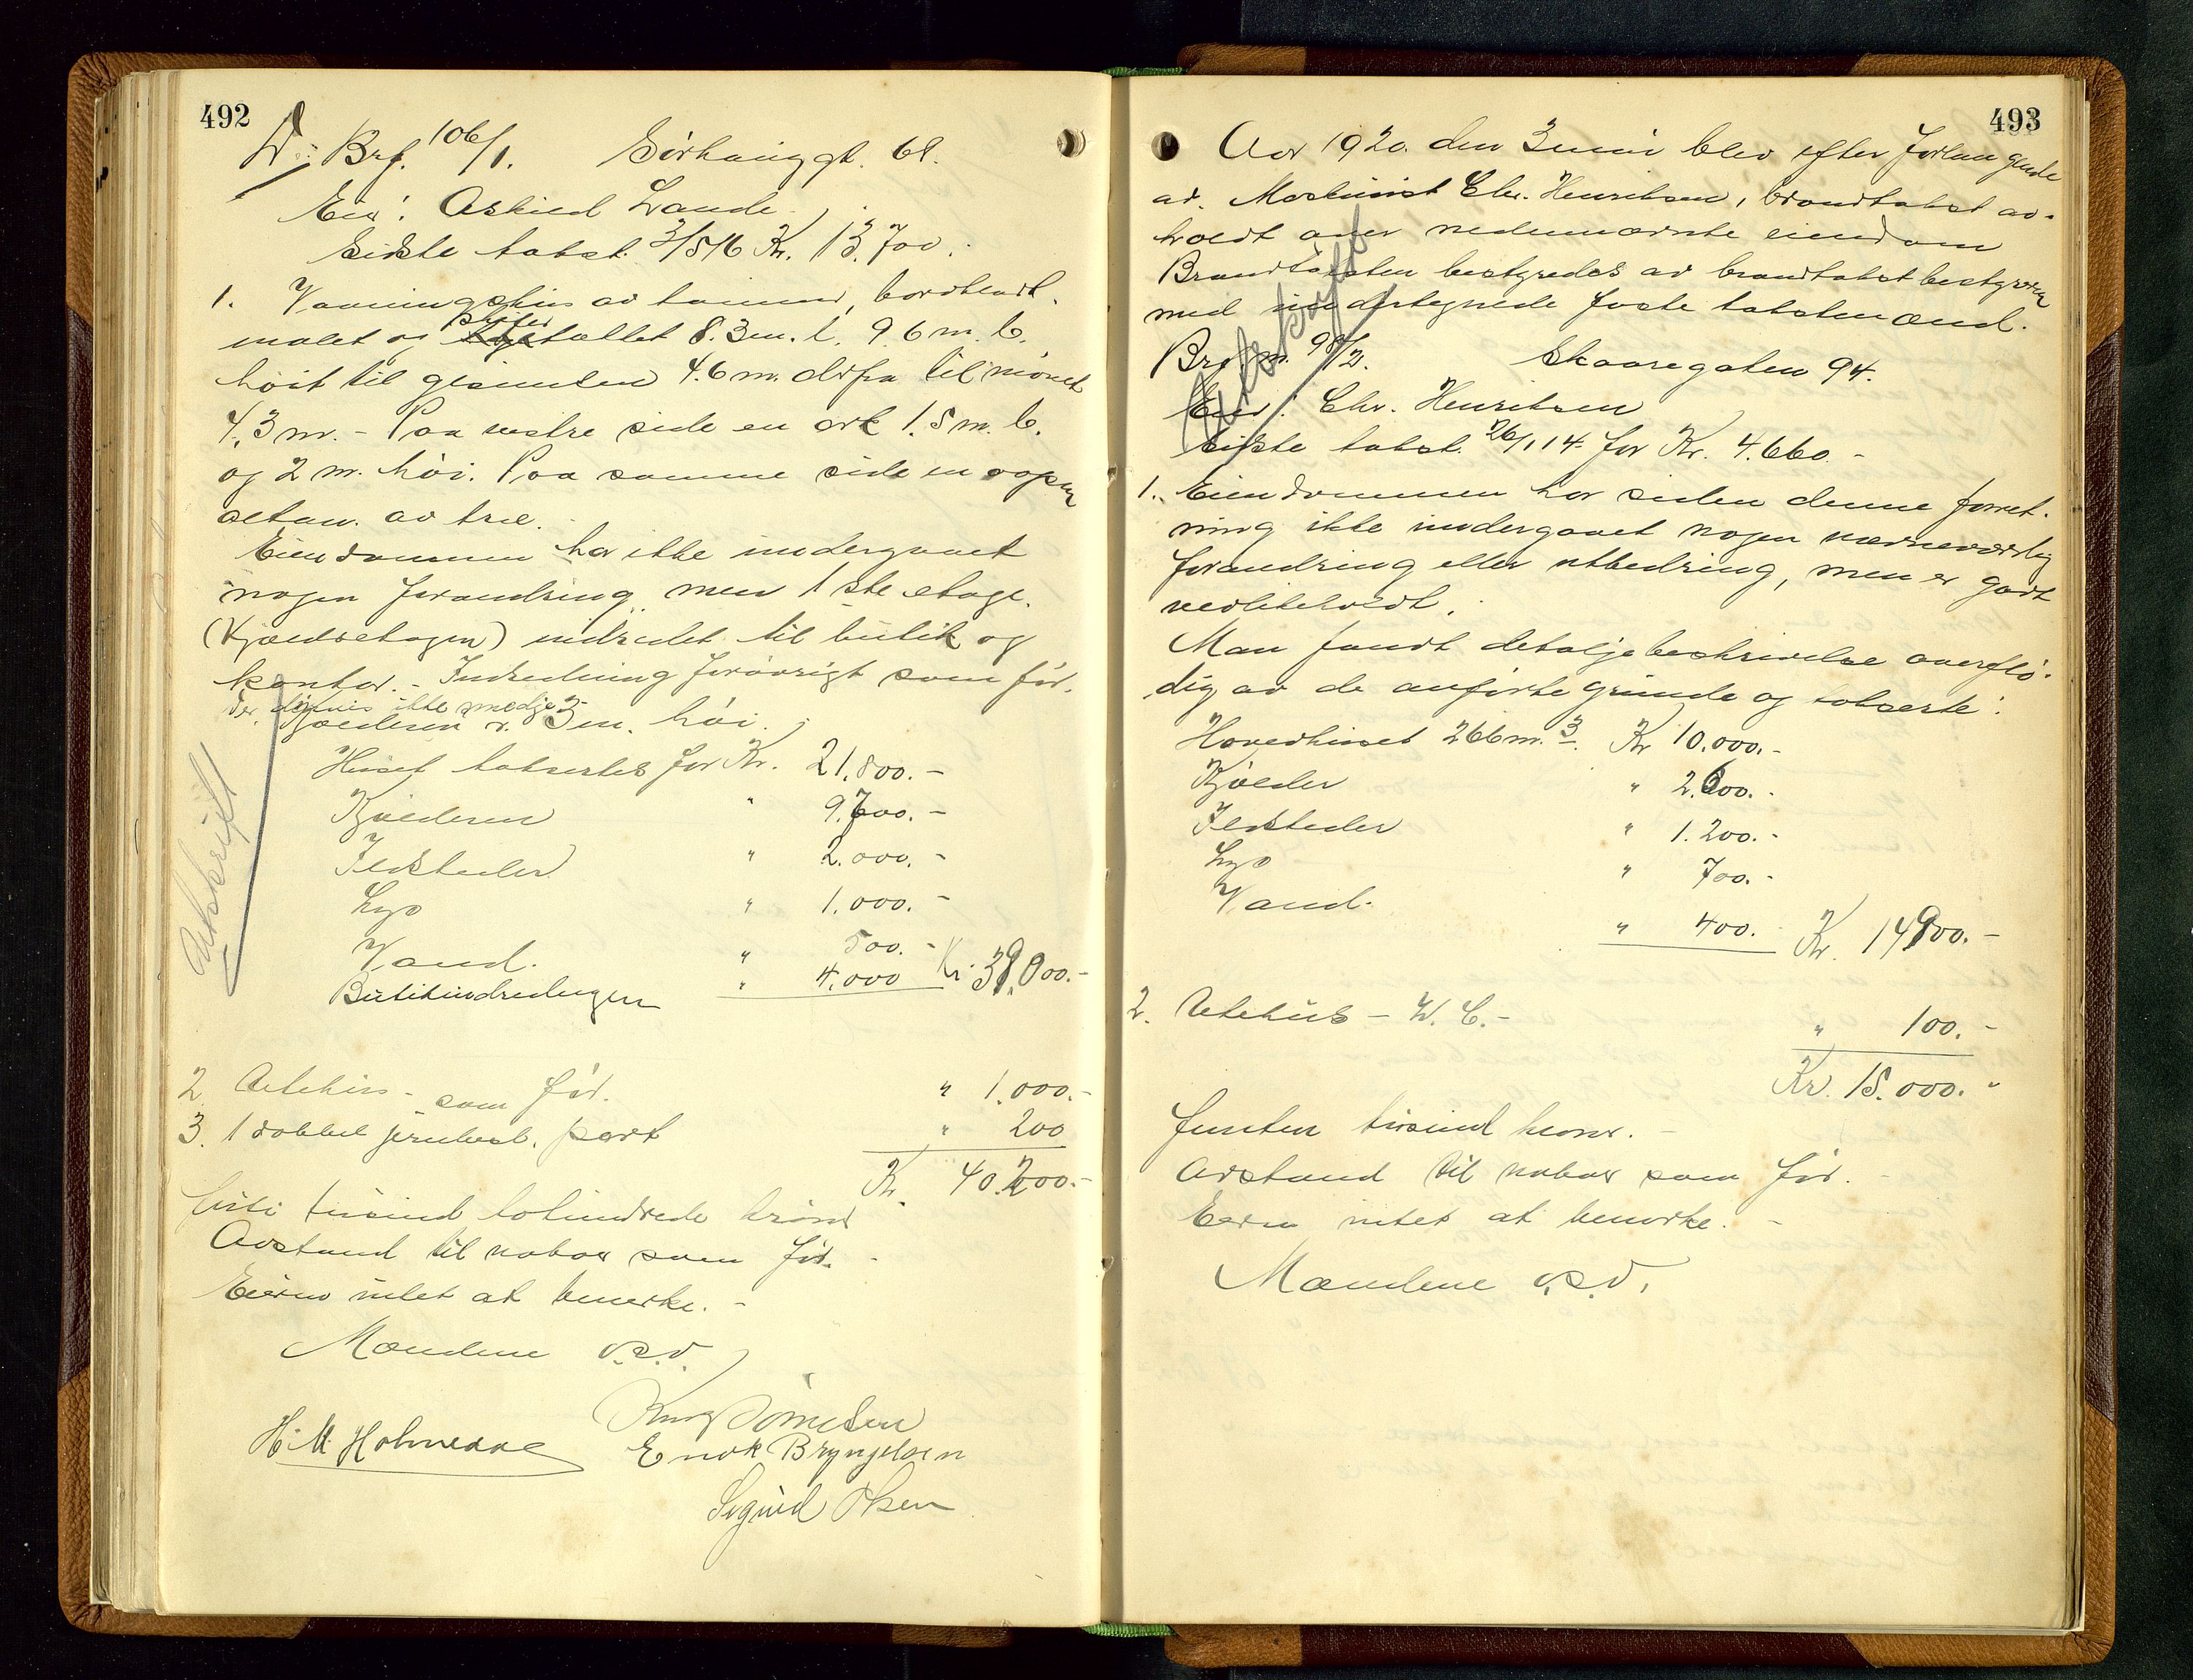 492
Brf. 106/1. Sörhauggt. 61.
Eier: Askild Lande.
Sidste takst. 3/5 16 Kr. 13.700.
1. Vaaningshus av tømmer, bordklædt,
malet og skifertækket 8.3 m. l. 9.6 m. b.
høit til gesimsen 4.6 m. derfra til mønet
4,3 m. - Paa vestre side en ark 1.5 m. b.
og 2 m. høi. Paa samme side en oopen
altan. av træ.
Eiendommen har ikke undergaaet
nogen forandring, men 1ste etage.
(Kjælderetagen) indredet til butik og
kontor. - Indredning forøvrigt som før.
Kjælderen er 3 m. høi.
Huset takseres for Kr. 21.500.-
Kjælderen " 9.700.-
Ildsteder " 2.000.-
Lys " 1.000.-
Vand. " 500.-
Butikindredningen " 4.000 Kr. 39.000.-
Utskrift
2. Utehus - som før. " 1.000.-
3. 1 dobbel jernbesl. port " 200
Kr. 40.200.-
firti tusind tohundrede kroner
Avstand til naboer som før. -
Eieren intet at bemerke. -
Mændene o.s.v.
H. M. Holmedal
Enok Bryngelsen
Sigurd Olsen
493
Aar 1920. den 3 juni blev efter forlangende
av. Maskinist Chr. Henriksen, brandtakst av-
holdt over nedennævnte eiendom
Brandtaksten bestyredes av brandtakstbestyreren
med undertegnede faste takstmænd.
Brf. nr. 98/2. Skaaregaten 94.
Eier: Chr. Henriksen
Sidste takst. 26/1 14 for Kr. 4.660. -
Utskrift
1. Eiendommen har siden denne forret-
ning ikke undergaaet nogen nævneværdig
forandring eller utbedring, men er godt
vedlikeholdt.
Man fandt detaljebeskrivelse overflö-
dig av de anførte grunde og takserte:
Hovedhuset 266 m.3 Kr 10.000.-
Kjælder " 2.600.-
Ildsteder " 1.200.-
Lys " 700.-
Vand. " 400. Kr. 14900.-
2. Utehus - W. C. - " 100.-
Kr. 15.000.-
femten tusind kroner. -
Avstand til naboer som før. -
Eieren intet at bemerke. -
Mændene o.s.v.